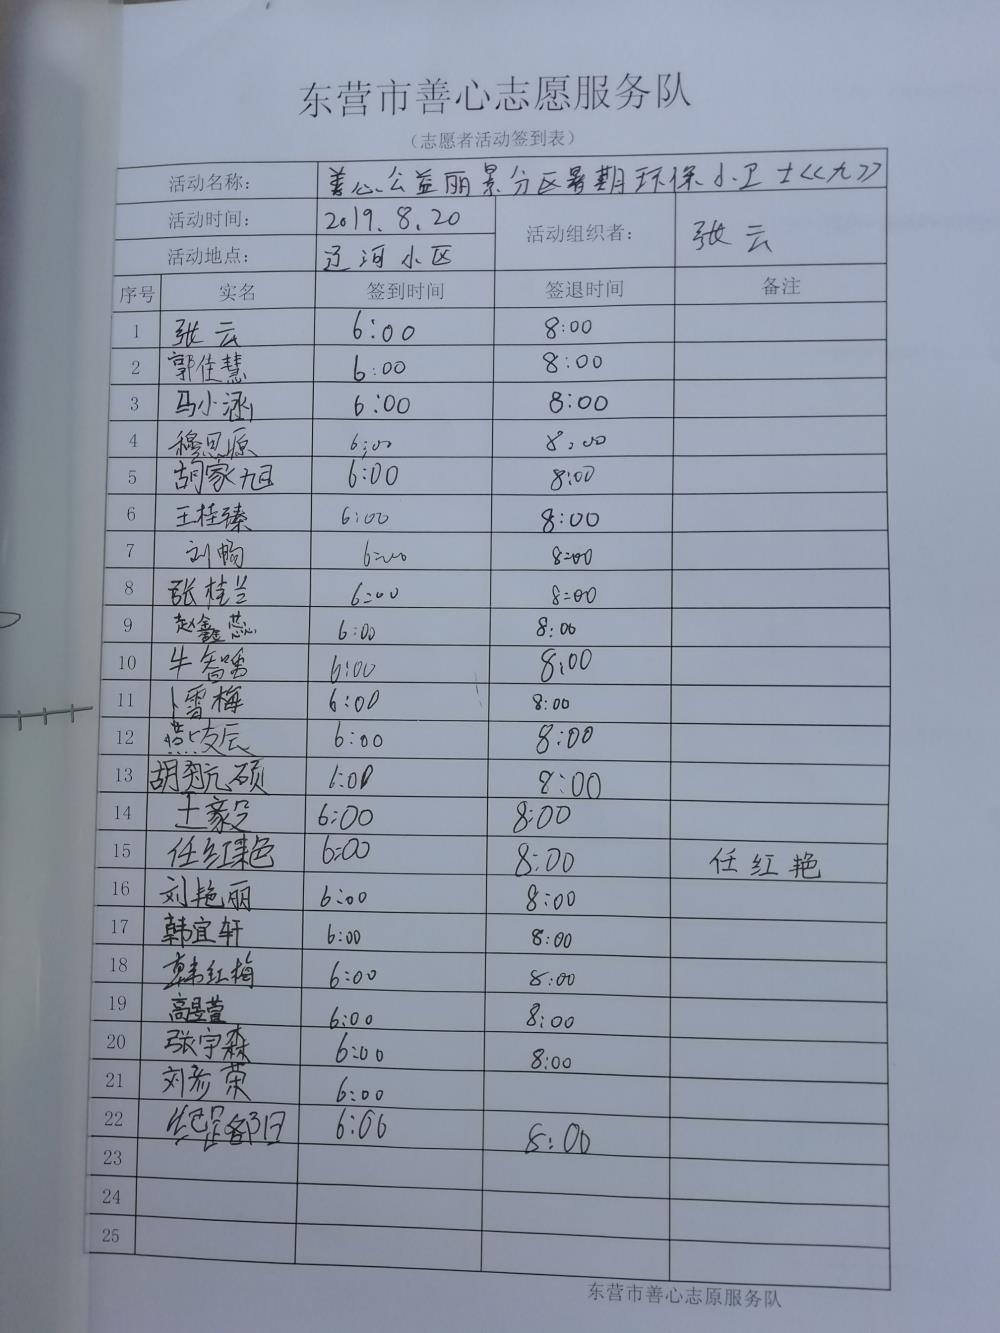 东营市善心志愿服务队
（志愿者活动签到表）
活动名称： 善心公益丽景分区暑期环保小卫士《九》
活动时间： 2019.8.20 活动组织者： 张云
活动地点： 辽河小区
序号 实名 签到时间 签退时间 备注
1 张云 6:00 8:00
2 郭佳慧 6:00 8:00
3 马小涵 6:00 8:00
4 穆思源 6:00 8:00
5 胡家旭 6:00 8:00
6 王桂臻 6:00 8:00
7 刘畅 6:00 8:00
8 张桂兰 6:00 8:00
9 赵鑫蕊 6:00 8:00
10 牛智 6:00 8:00
11 卜雪梅 6:00 8:00
12 6:00 8:00
13 胡航硕 6:00 8:00
14 王毅 6:00 8:00
15 任红艳 6:00 8:00 任红艳
16 刘艳丽 6:00 8:00
17 韩宜轩 6:00 8:00
18 韩红梅 6:00 8:00
19 高昱萱 6:00 8:00
20 张宇森 6:00 8:00
21 刘彦荣 6:00
22 6:00 8:00
23
24
25
东营市善心志原服务队